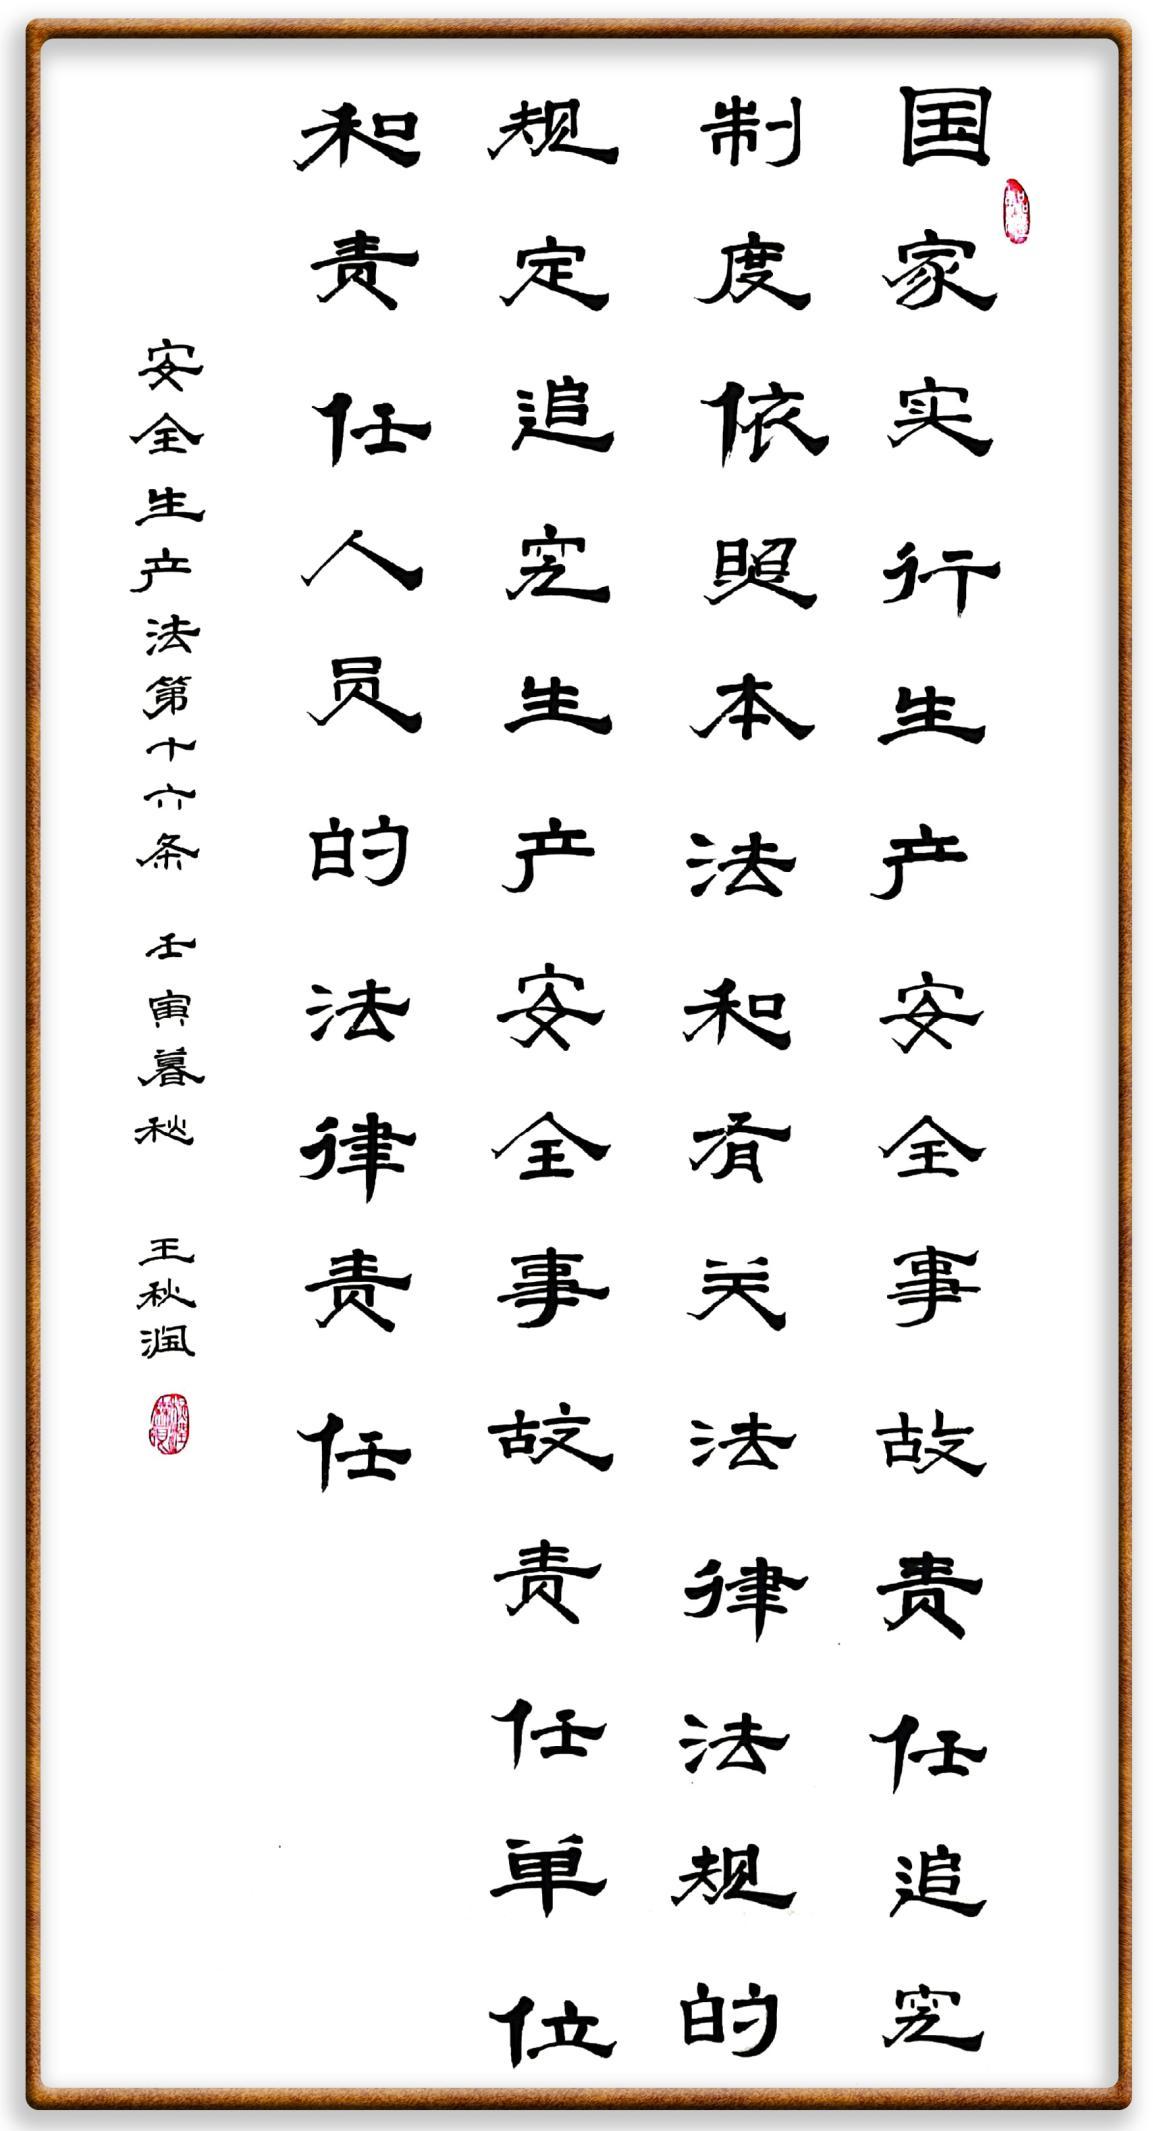 国家实行生产安全事故责任追究
制度依照本法和有关法律法规的
规定追究生产安全事故责任单位
和责任人员的法律责任
安全生产法第十六条 壬寅暮秋 王秋润